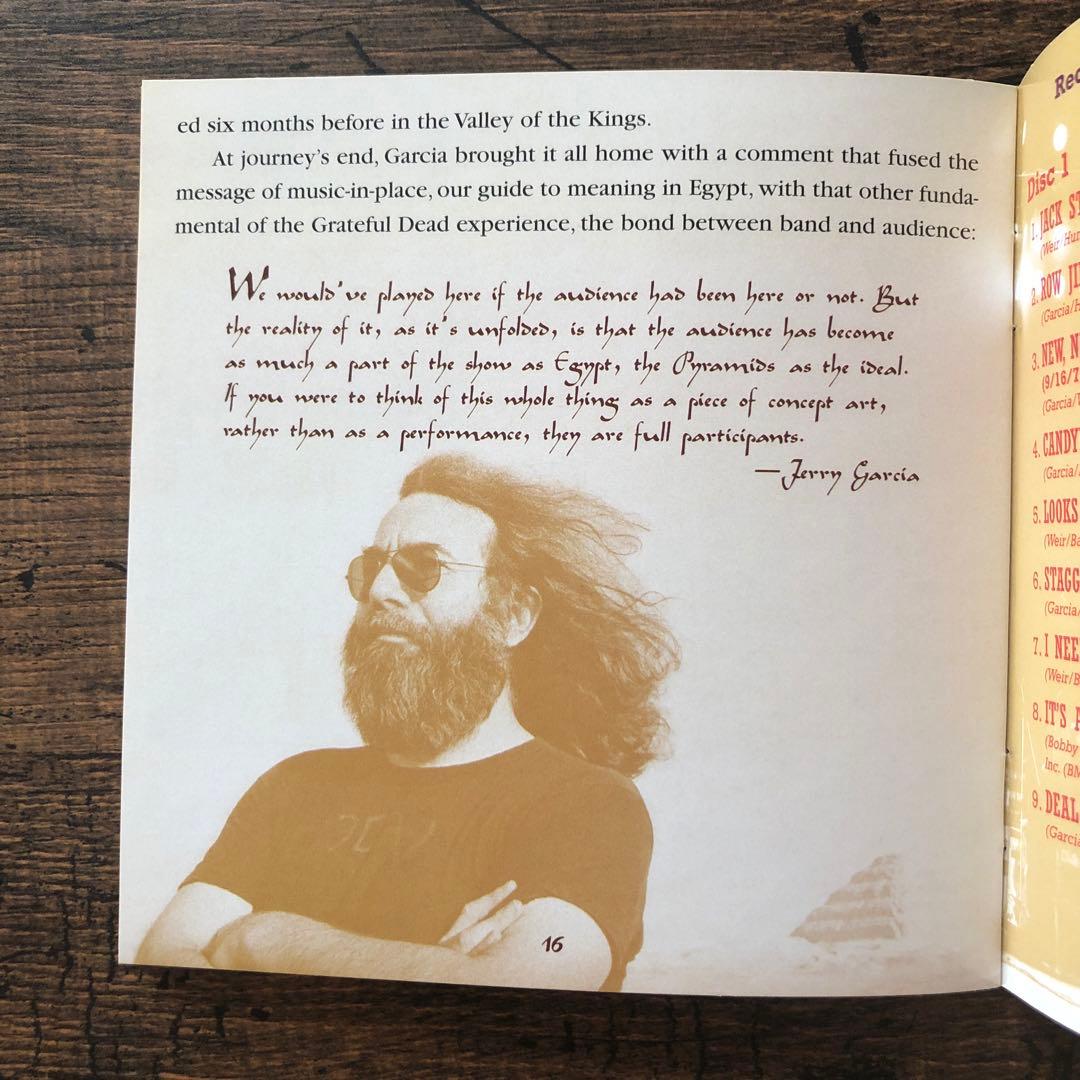 ed six months before in the Valley of the Kings.
At journey's end, Garcia brought it all home with a comment that fused the
message of music-in-place, our guide to meaning in Egypt, with that other funda-
mental of the Grateful Dead experience, the bond between band and audience:
We would've played here if the audience had been here or not. But
the reality of it, as it's unfolded, is that the audience has become
as much a part of the show as Egypt, the Pyramids as the ideal.
If you were to think of this whole thing as a piece of concept art,
rather than as a performance, they are full participants.
—Jerry Garcia
16
Disc 1
1. JACK
2. ROW
(Garcia/
3. NEW,
(9/16/7
(Garcia/
4. CANDY
(Garcia/
5. LOOKS
(Weir/Ba
6. STAGG
(Garcia/
7. I NEE
(Weir/B
8. IT'S
(Bobby
Inc. (BM
9. DEAL
(Garcia